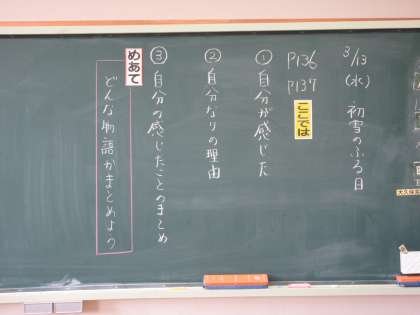 3/13
(水)
初雪のふる日
P136
P137
ここでは
① 自分が感じた
② 自分なりの理由
③ 自分の感じたことのまとめ
めあて
どんな物語かまとめよう